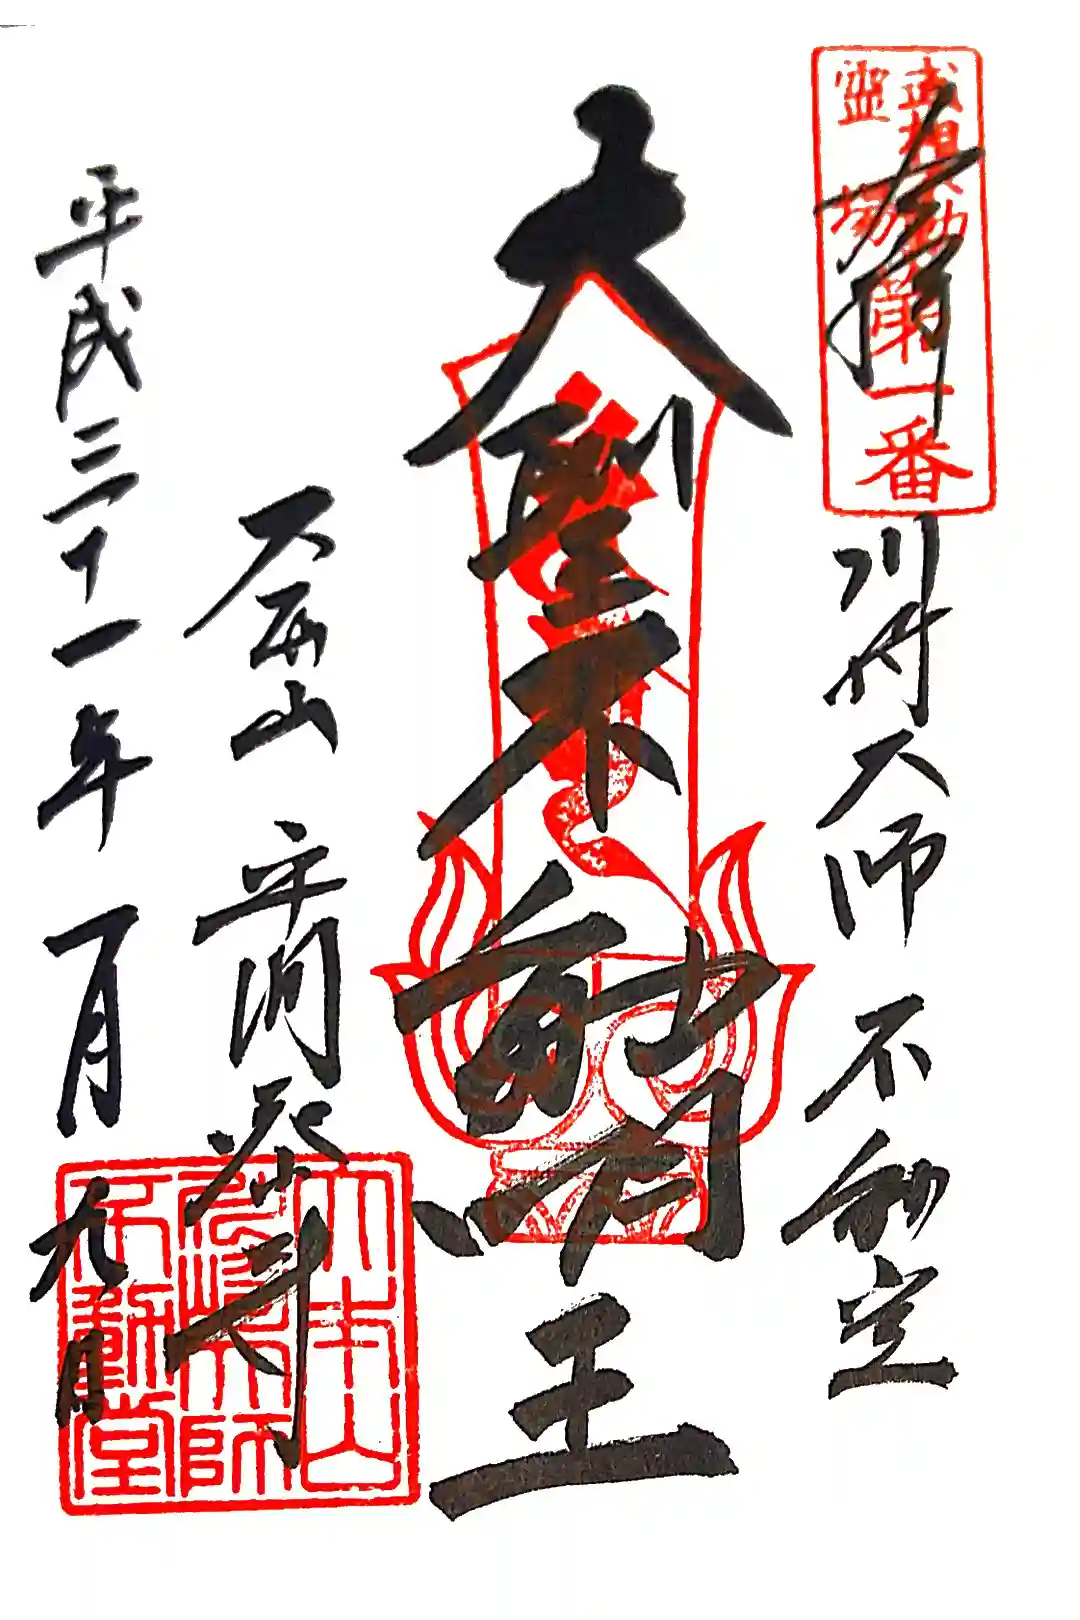 武相不動
霊場
第一番
奉拝
川崎大師 不動堂
大聖不動明王
大本山 平間寺
大本山
川崎大師
不動堂
平成三十一年一月九日